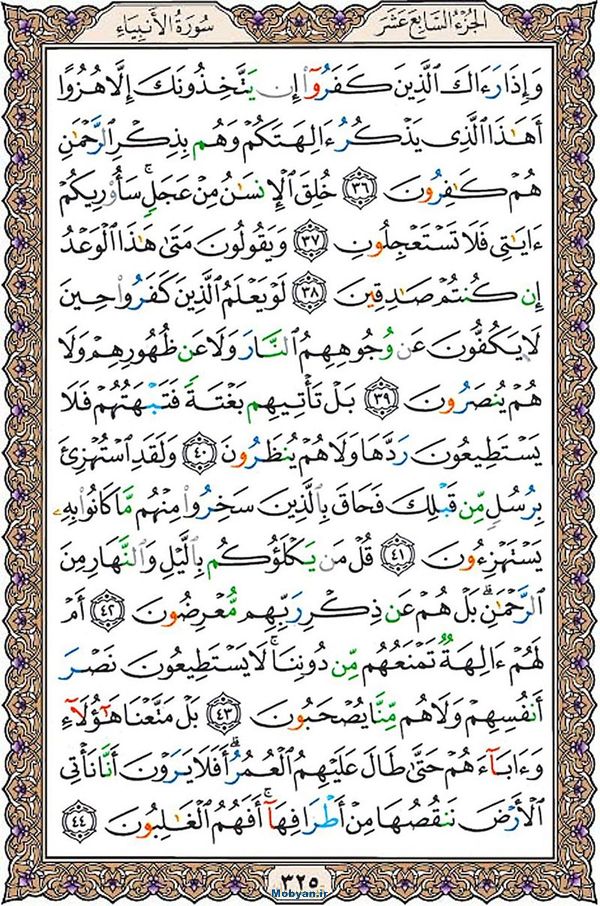 سُورَةُ الأَنبِيَاءِ
الجُزْءُ السَّابِعَ عَشَرَ
وَإِذَا رَءَاكَ ٱلَّذِينَ كَفَرُوٓا۟ إِن يَتَّخِذُونَكَ إِلَّا هُزُوًا
أَهَٰذَا ٱلَّذِى يَذْكُرُ ءَالِهَتَكُمْ وَهُم بِذِكْرِ ٱلرَّحْمَٰنِ
هُمْ كَٰفِرُونَ ٣٦ خُلِقَ ٱلْإِنسَٰنُ مِنْ عَجَلٍۢ ۚ سَأُو۟رِيكُمْ
ءَايَٰتِى فَلَا تَسْتَعْجِلُونِ ٣٧ وَيَقُولُونَ مَتَىٰ هَٰذَا ٱلْوَعْدُ
إِن كُنتُمْ صَٰدِقِينَ ٣٨ لَوْ يَعْلَمُ ٱلَّذِينَ كَفَرُوا۟ حِينَ
لَا يَكُفُّونَ عَن وُجُوهِهِمُ ٱلنَّارَ وَلَا عَن ظُهُورِهِمْ وَلَا
هُمْ يُنصَرُونَ ٣٩ بَلْ تَأْتِيهِم بَغْتَةً فَتَبْهَتُهُمْ فَلَا
يَسْتَطِيعُونَ رَدَّهَا وَلَا هُمْ يُنظَرُونَ ٤٠ وَلَقَدِ ٱسْتُهْزِئَ
بِرُسُلٍ مِّن قَبْلِكَ فَحَاقَ بِٱلَّذِينَ سَخِرُوا۟ مِنْهُم مَّا كَانُوا۟ بِهِۦ
يَسْتَهْزِءُونَ ٤١ قُلْ مَن يَكْلَؤُكُم بِٱلَّيْلِ وَٱلنَّهَارِ مِنَ
ٱلرَّحْمَٰنِ ۗ بَلْ هُمْ عَن ذِكْرِ رَبِّهِم مُّعْرِضُونَ ٤٢ أَمْ
لَهُمْ ءَالِهَةٌ تَمْنَعُهُم مِّن دُونِنَا ۚ لَا يَسْتَطِيعُونَ نَصْرَ
أَنفُسِهِمْ وَلَا هُم مِّنَّا يُصْحَبُونَ ٤٣ بَلْ مَتَّعْنَا هَٰٓؤُلَآءِ
وَءَابَآءَهُمْ حَتَّىٰ طَالَ عَلَيْهِمُ ٱلْعُمُرُ ۗ أَفَلَا يَرَوْنَ أَنَّا نَأْتِى
ٱلْأَرْضَ نَنقُصُهَا مِنْ أَطْرَافِهَآ ۚ أَفَهُمُ ٱلْغَٰلِبُونَ ٤٤
٣٢٥
Mobyan.ir